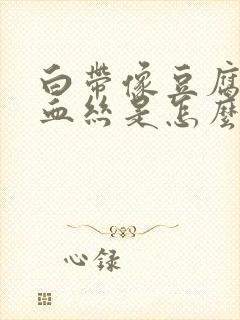 白带像豆腐
血丝是怎麼
心録